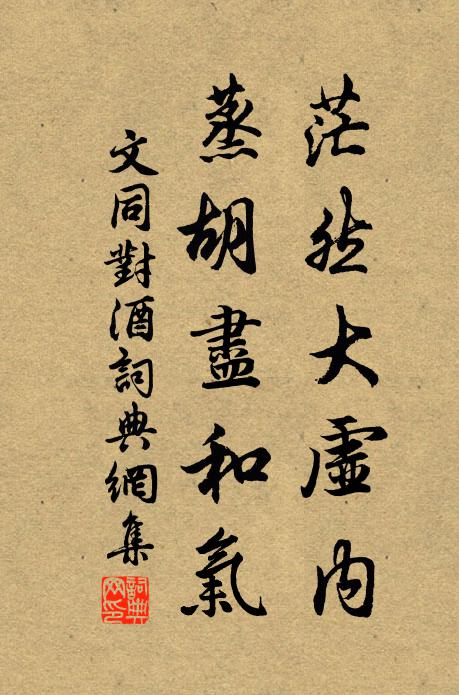 茫然大虛內
蒸胡盡和氣
文同對酒詞典網集
詞典网印